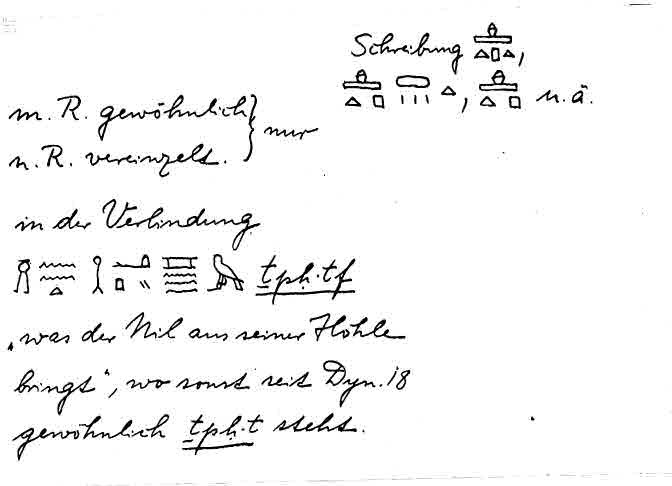 Schreibung ,
, u. ä.
m. R. gewöhnlich } nur
n. R. vereinzelt.
in der Verbindung
ṯpḥ.tf
„was der Nil aus seiner Höhle
bringt“, wo sonst seit Dyn. 18
gewöhnlich ṯpḥ.t steht.